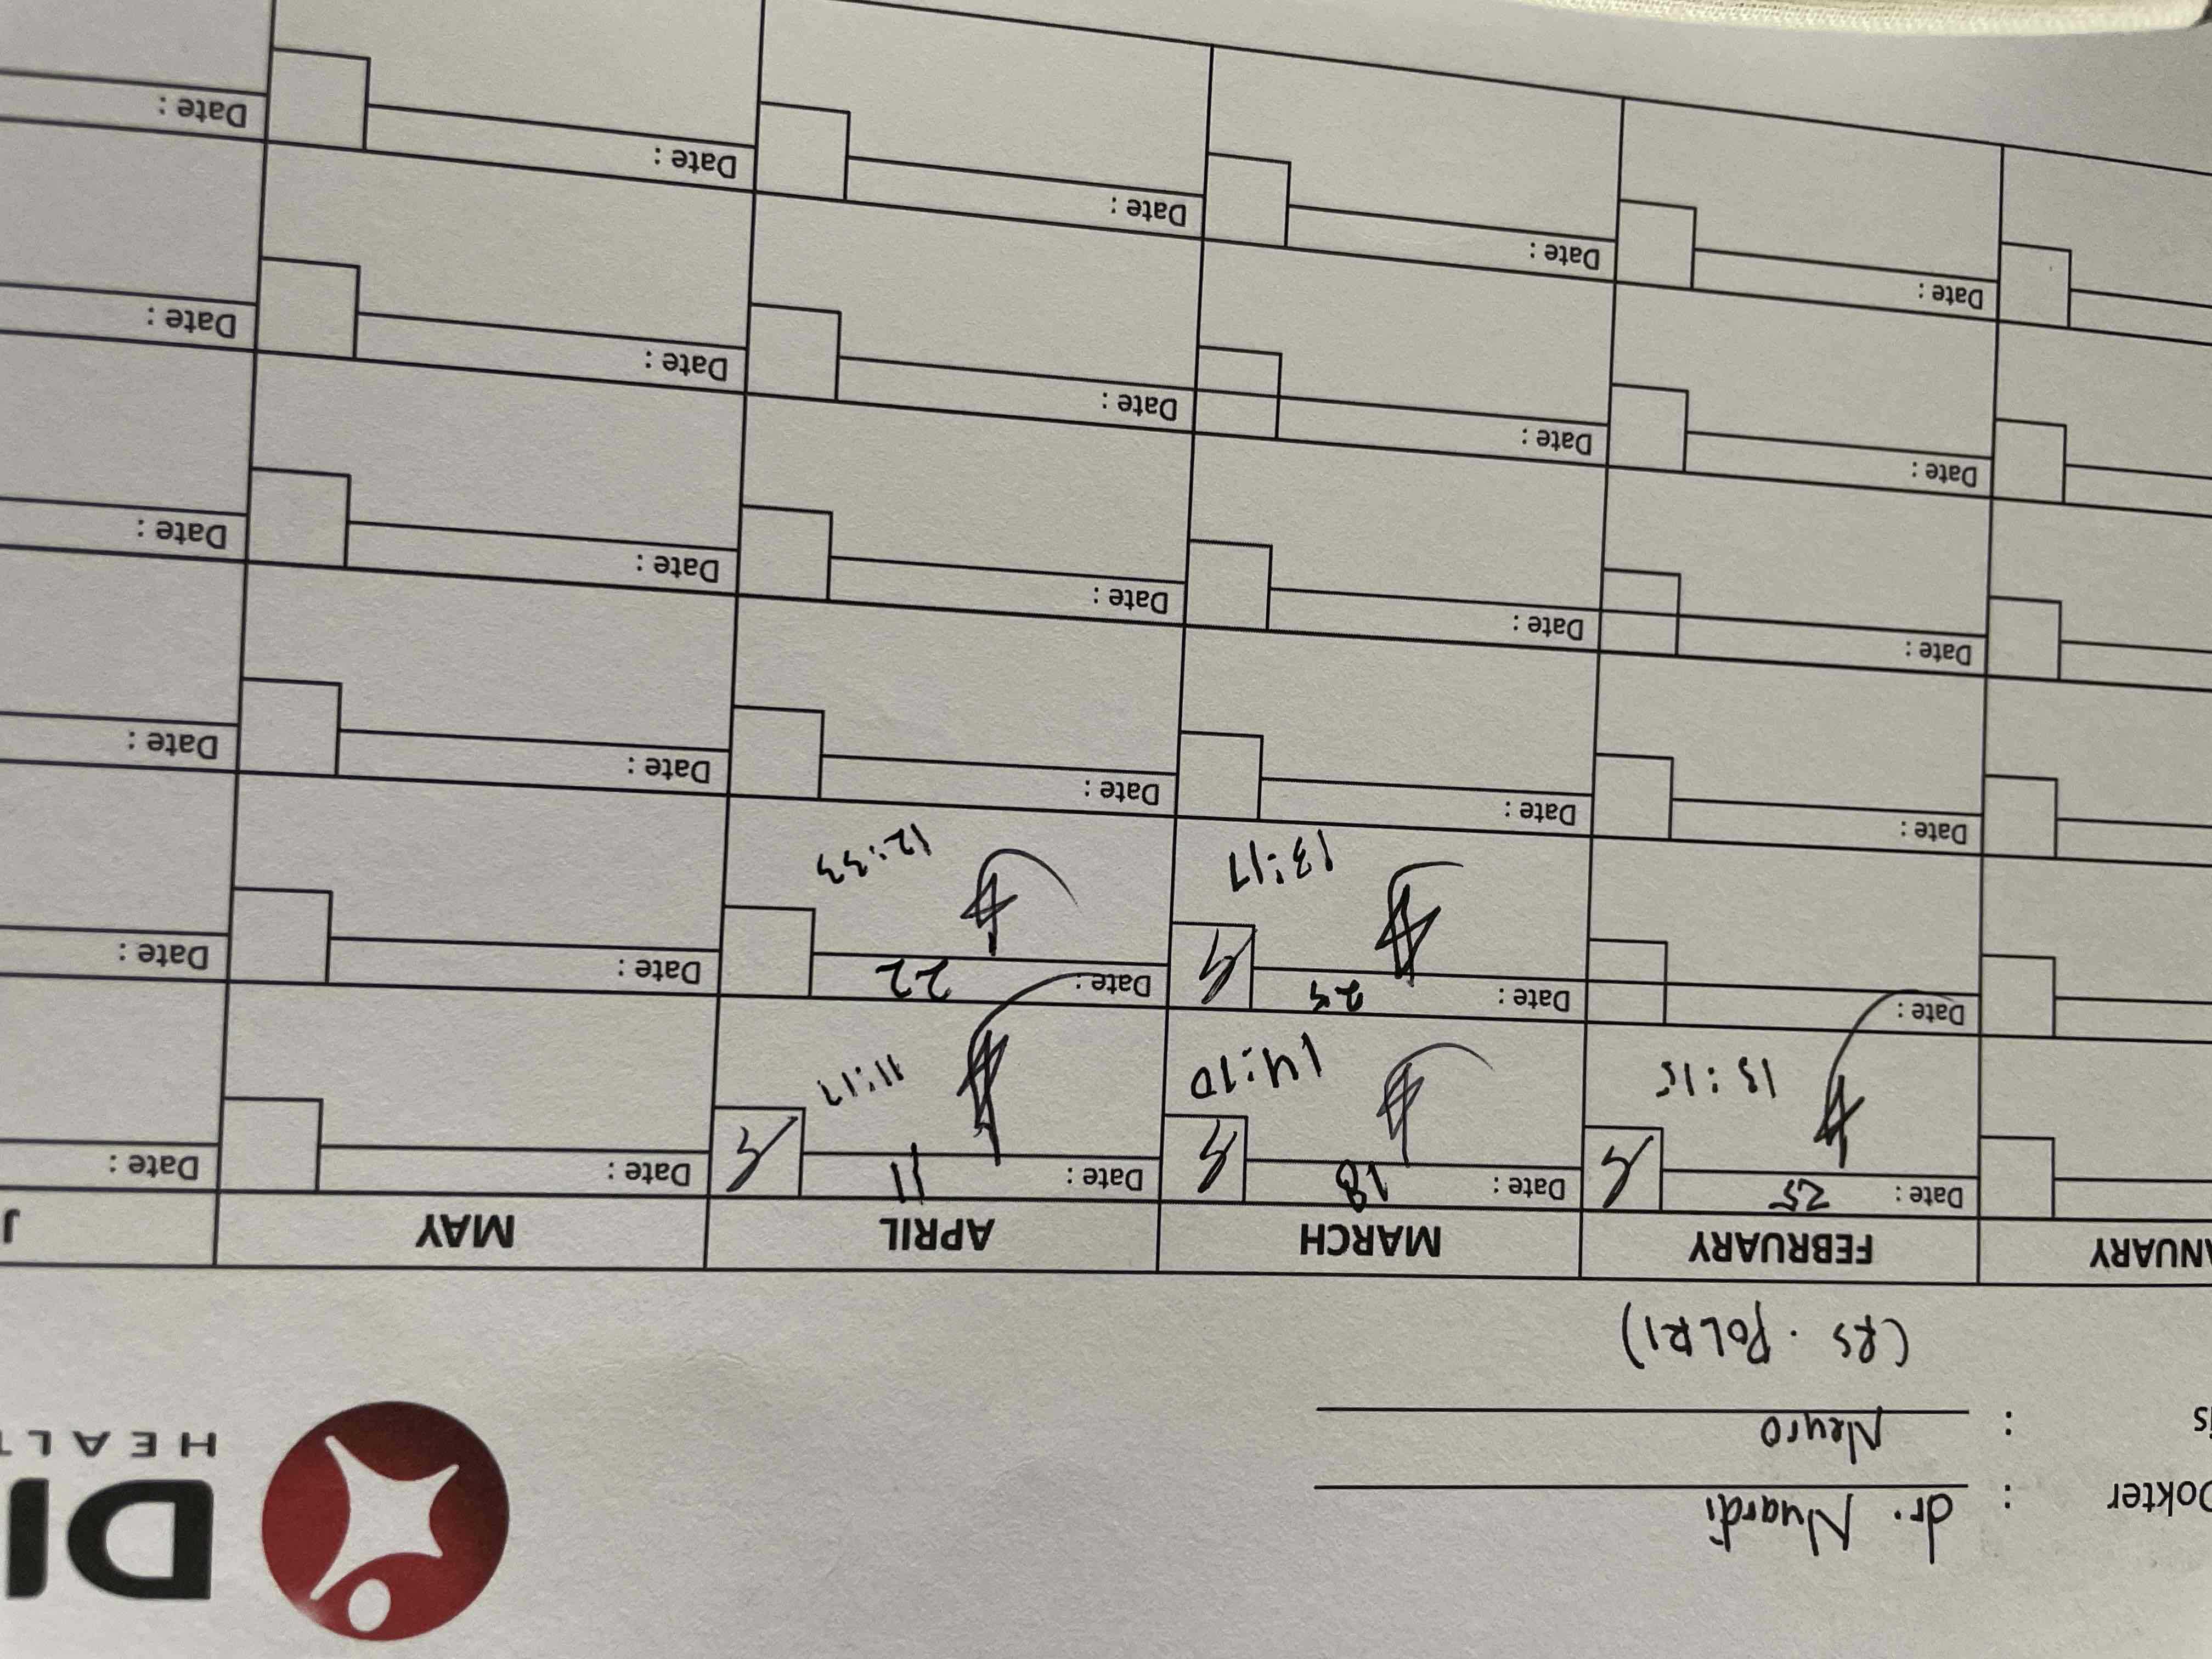 Dokter : dr. Nuardi
DI
: Neuro
HEALT
(RS. POLRI)
NUARY FEBRUARY MARCH APRIL MAY J
Date : 25 Date : 18 Date : 11 Date : Date :
13:15 14:10 11:17
Date : Date : Date : 22 Date : Date :
13:17 12:33
Date : Date : Date : Date : Date :
Date : Date : Date : Date : Date :
Date : Date : Date : Date : Date :
Date : Date : Date : Date : Date :